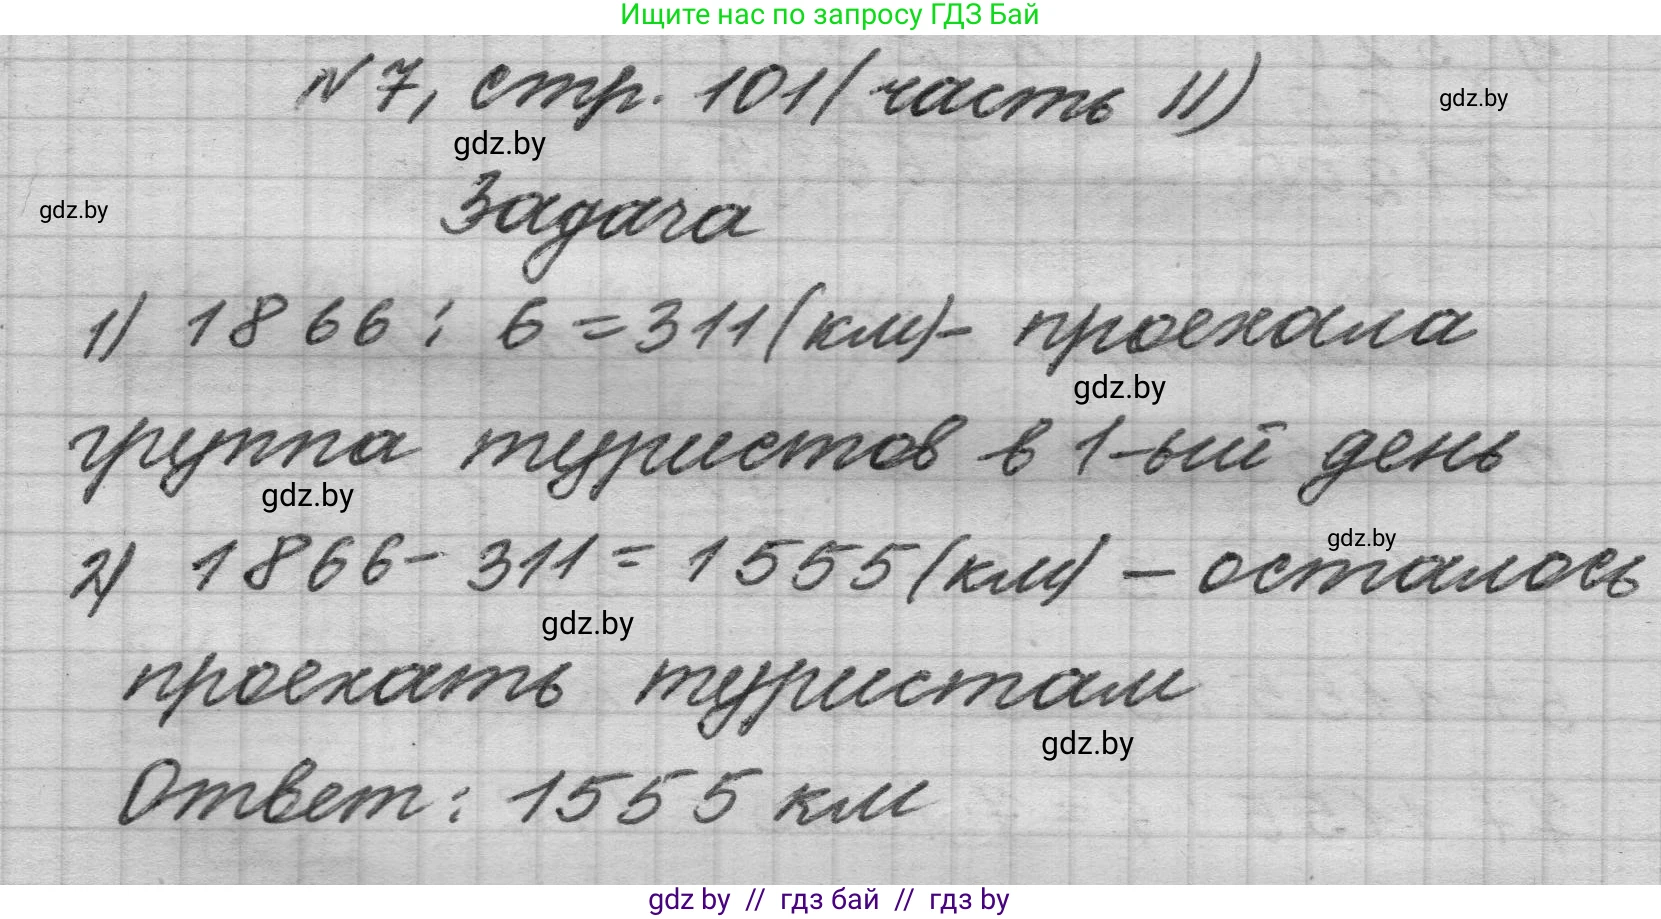 Ищите нас по запросу ГДЗ Бай
№7, стр. 101 (часть II)
gdz.by
gdz.by
Задача
gdz.by
1) 1866 : 6 = 311 (км) - проехала
gdz.by
группа туристов в 1-ый день
gdz.by
2) 1866 - 311 = 1555 (км) - осталось
gdz.by
gdz.by
проехать туристам
gdz.by
Ответ: 1555 км
gdz by // гдз бай // гдз by